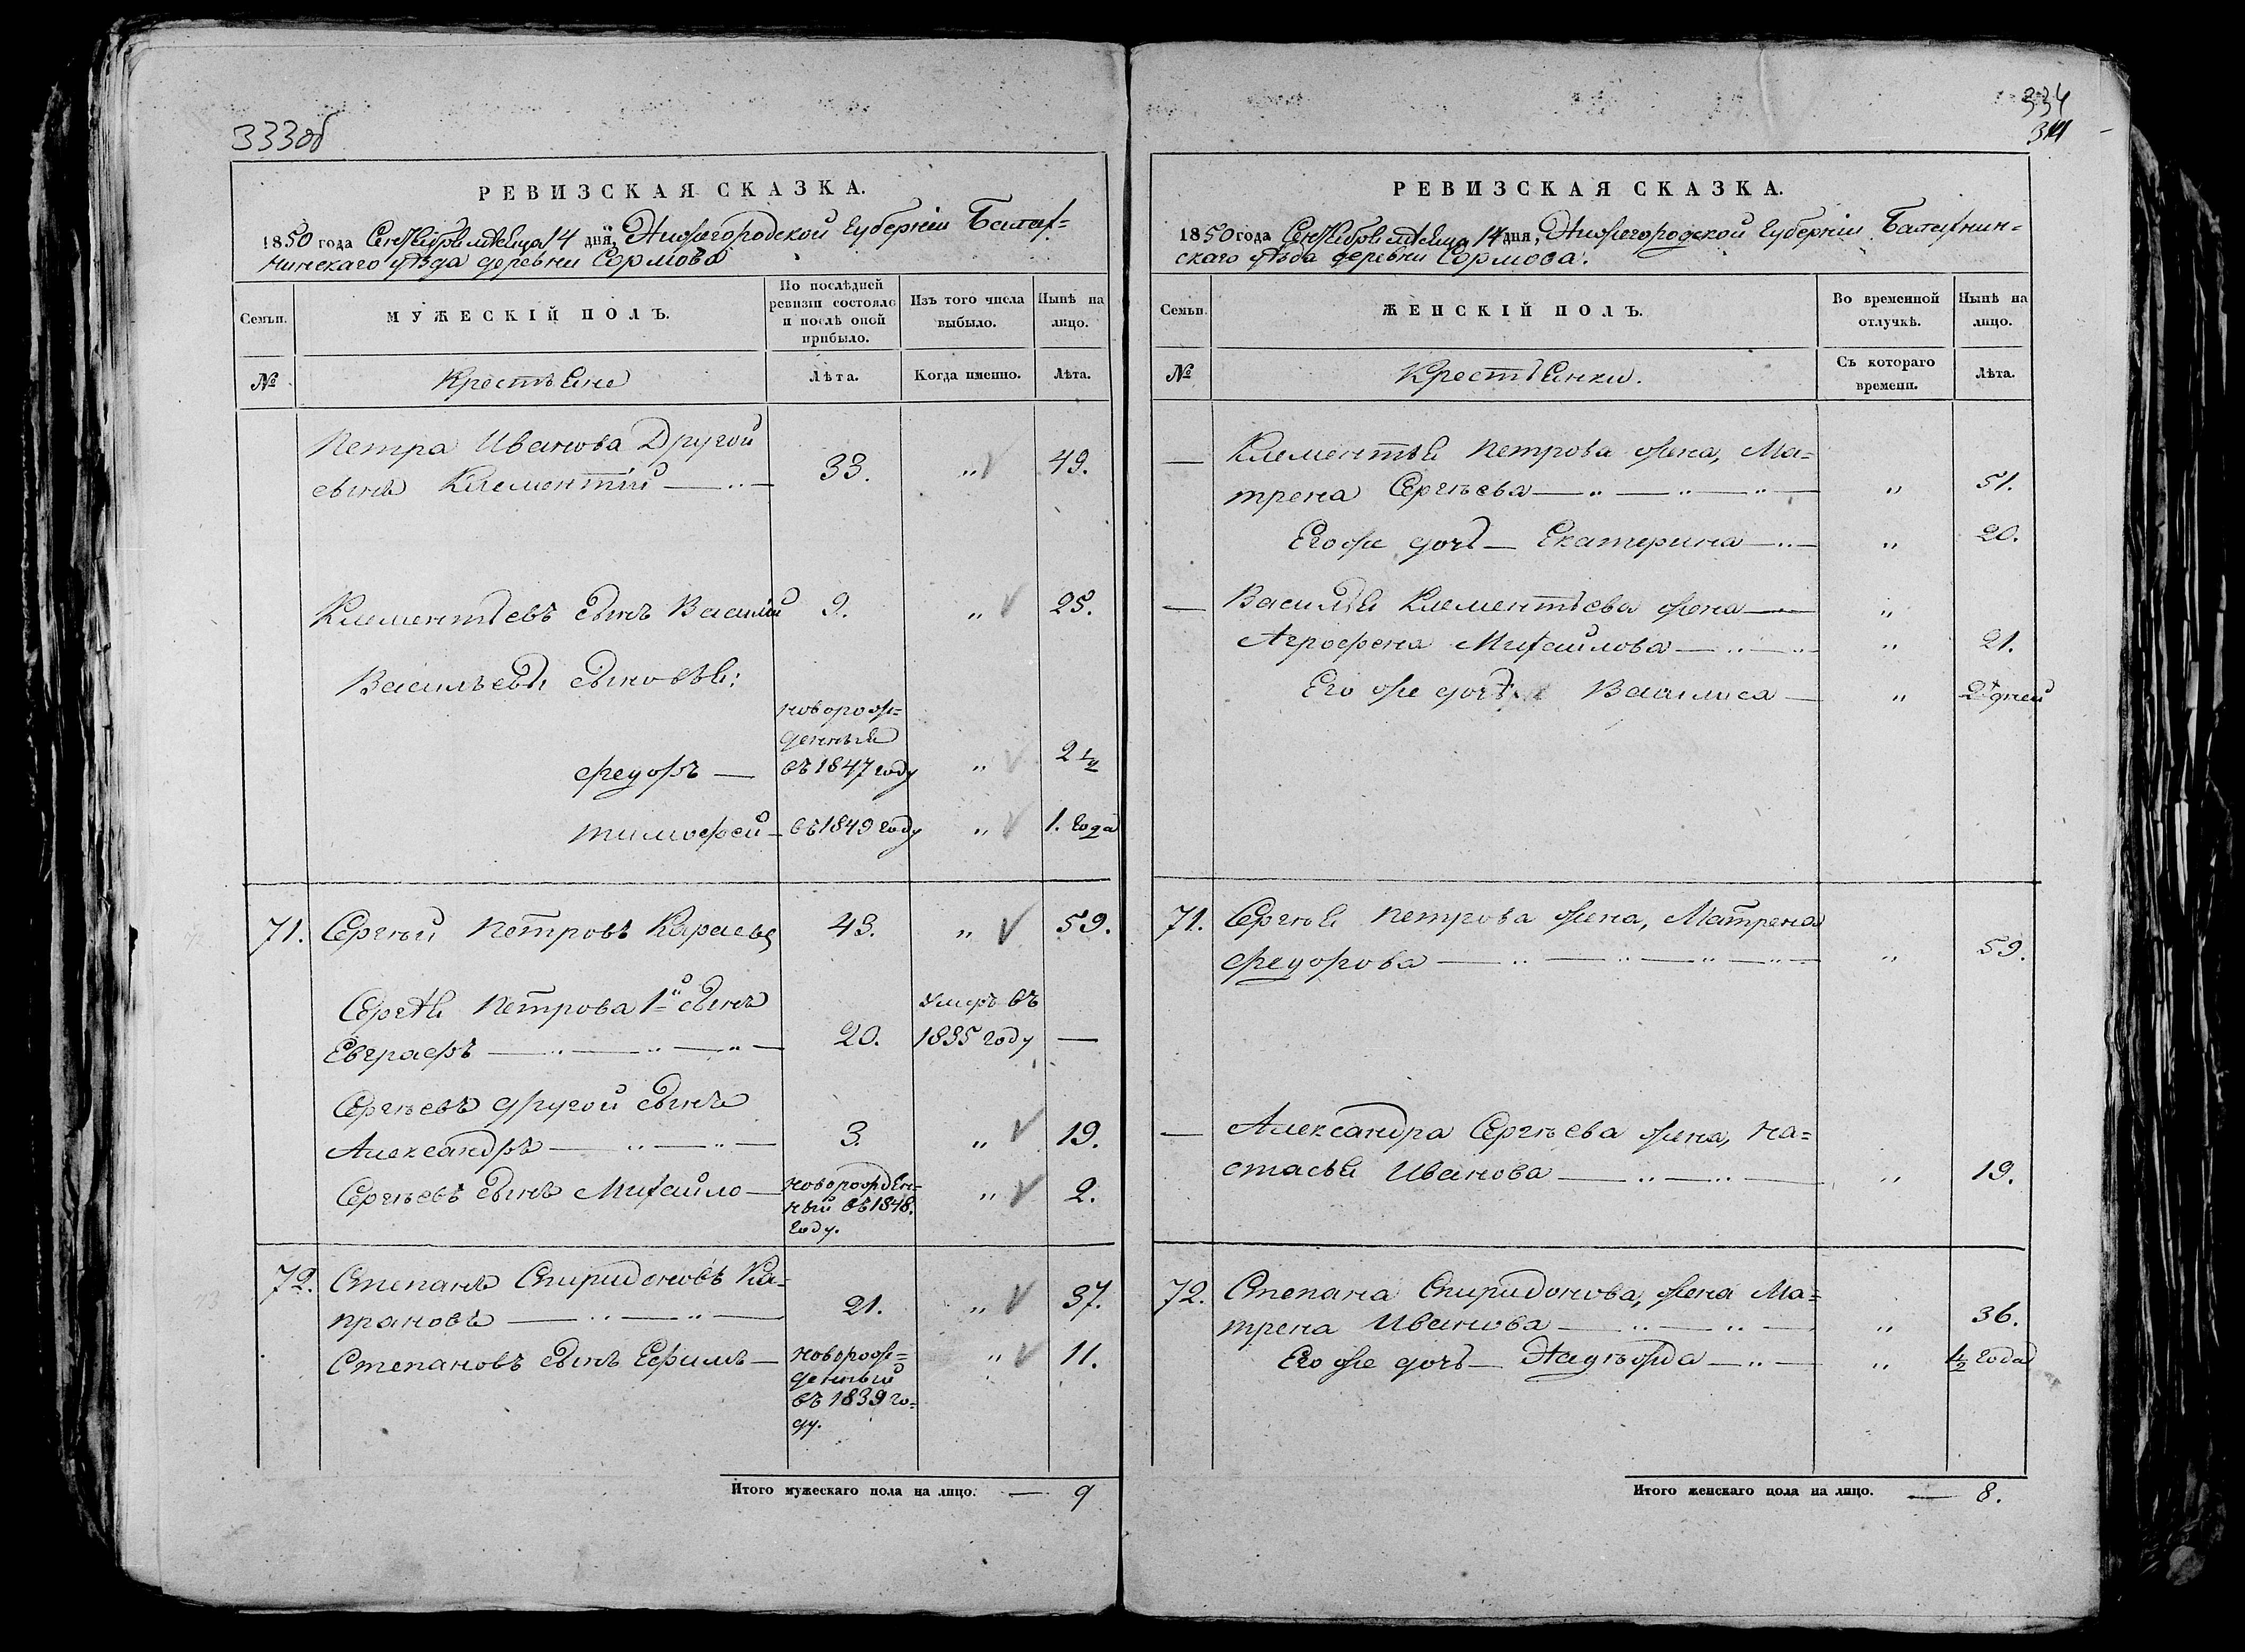 333об
РЕВИЗСКАЯ СКАЗКА.
1850 года Сентября месяца 14 дня, Нижегородской Губернiи Балах=
нинскаго уѣзда деревни Сормова
Семьи.
МУЖЕСКІЙ ПОЛЪ.
По послѣдней
ревизіи состояло
и послѣ оной
прибыло.
Изъ того числа
выбыло.
Нынѣ на
лицо.
№
Крестьяне
Лѣта.
Когда именно.
Лѣта.
Петра Иванова Другой
сынъ Клементій — „ —
33.
„
49.
Клементьевъ сынъ Василій
9.
„
25.
Васильевы сыновья:
новорож=
денный
Федоръ —
въ 1847 году
„
2 ½
Тимофей —
въ 1849 году
„
1. года
71.
Сергѣй Петровъ Караевъ
43.
„
59.
Сергѣя Петрова 1й сынъ
Умеръ въ
Евграфъ — „ — „ — „ —
20.
1835 году
—
Сергѣевъ другой сынъ
Александръ — „ — „ —
3.
„
19.
Сергѣевъ сынъ Михайло —
новорожден=
ный въ 1848.
году.
„
2.
72.
Степанъ Спиридоновъ Ка=
прановъ — „ — „ —
21.
„
37.
Степановъ сынъ Ефимъ —
новорож=
денный
въ 1839 го=
ду.
„
11.
Итого мужескаго пола на лицо. — 9
334
РЕВИЗСКАЯ СКАЗКА.
1850 года Сентября месяца 14 дня, Нижегородской Губернiи Балахнин=
скаго уѣзда деревни Сормова.
Семьи.
ЖЕНСКІЙ ПОЛЪ.
Во временной
отлучкѣ.
Нынѣ на
лицо.
№
Крестьянки.
Съ котораго
времени.
Лѣта.
— Клементья Петрова жена, Ма=
трена Сергѣева — „ — „ — „ —
„
51.
Его же дочь — Екатерина — „ —
„
20.
— Василья Клементьева жена —
„
Агрофена Михайлова — „ — „
„
21.
Его же дочь Василиса —
„
дней
71.
Сергѣя Петрова жена, Матрена
Федорова — „ — „ — „ — „ —
„
59.
— Александра Сергѣева жена, На=
стасья Иванова — „ — „ —
„
19.
72.
Степана Спиридонова, жена Ма=
трена Иванова — „ — „ —
„
36.
Его же дочь — Надѣжда — „ —
„
½ года
Итого женскаго пола на лицо. — 8.